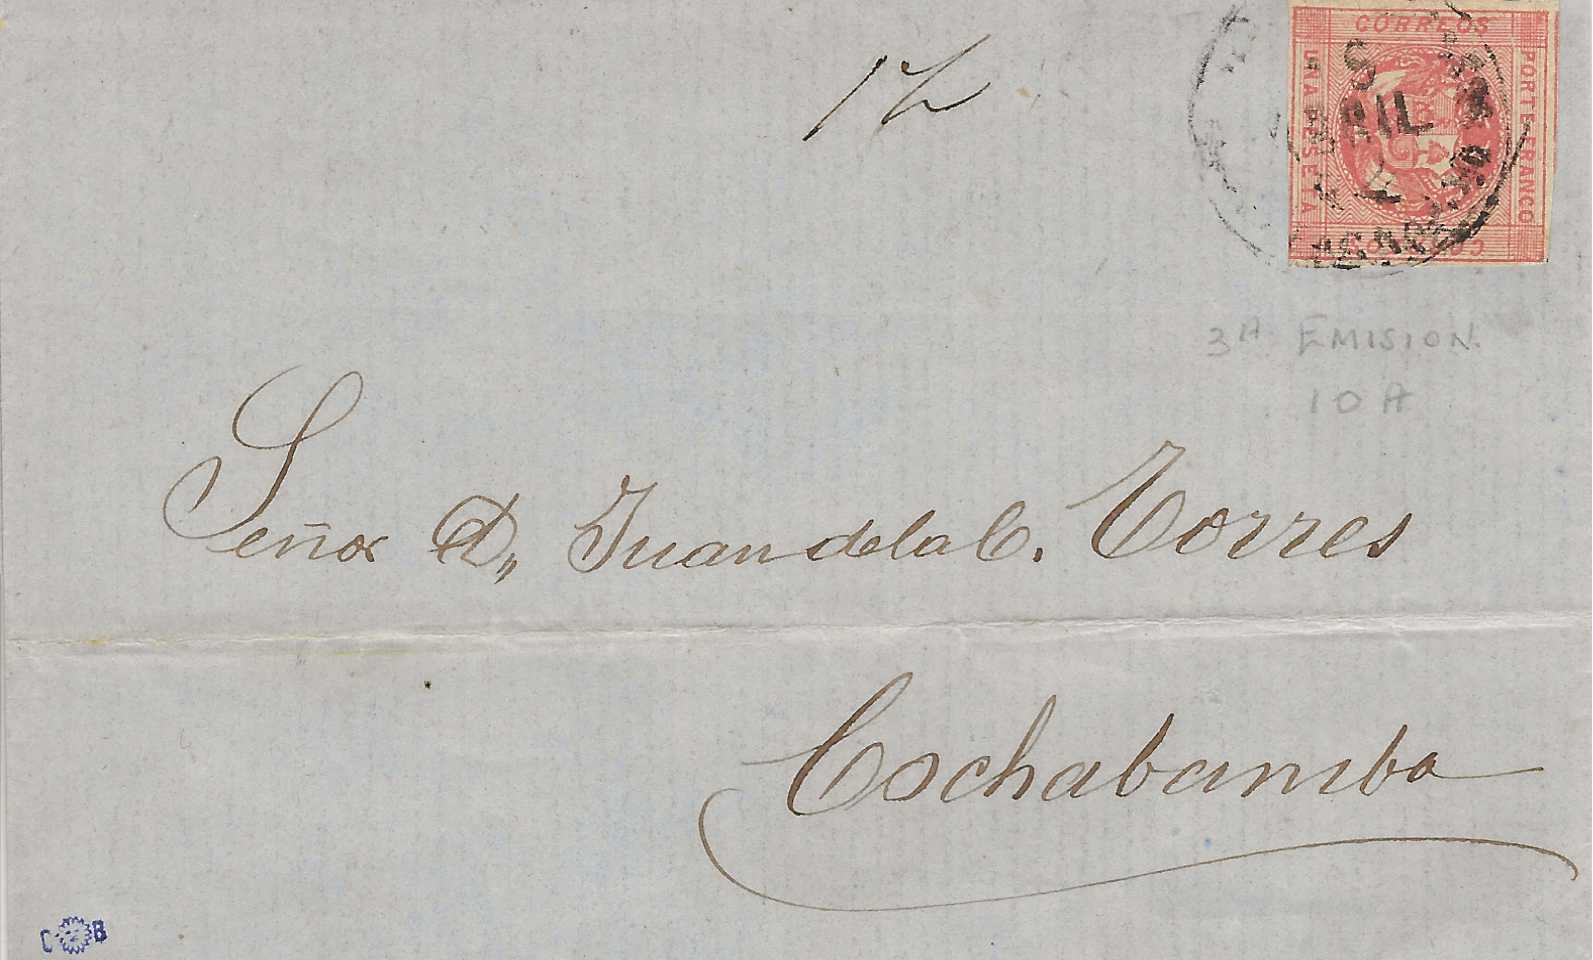 12
CORREOS
UNA PESETA
PORTE FRANCO
CORREOS
3A EMISION.
10 A
Señor D,, Juan de la C. Torres
Cochabamba
C B